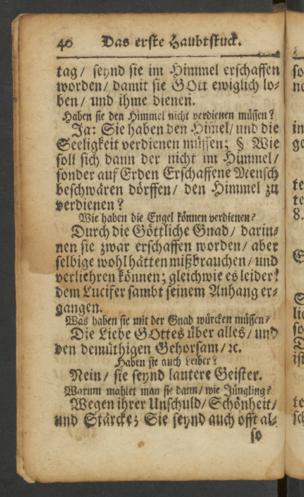 40 Das erste Haubtstuck.
tag / seynd sie im Himmel erschaffen
worden / damit sie GOtt ewiglich lo-
ben / und ihme dienen.
Haben sie den Himmel nicht verdienen müssen?
Ja: Sie haben den Him̃el / und die
Seeligkeit verdienen müssen; § Wie
soll sich dann der nicht im Himmel /
sonder auf Erden Erschaffene Mensch
beschwären dörffen / den Himmel zu
verdienen?
Wie haben die Engel können verdienen?
Durch die Göttliche Gnad / darin-
nen sie zwar erschaffen worden / aber
selbige wohl hätten mißbrauchen / und
verliehren können; gleichwie es leider!
dem Lucifer sambt seinem Anhang er-
gangen.
Was haben sie mit der Gnad würcken müssen?
Die Liebe GOttes über alles / und
den demüthigen Gehorsam / ꝛc.
Haben sie auch Leiber?
Nein / sie seynd lautere Geister.
Warum mahlet man sie dann / wie Jüngling?
Wegen ihrer Unschuld / Schönheit /
und Stärcke; Sie seynd auch offt al-
so